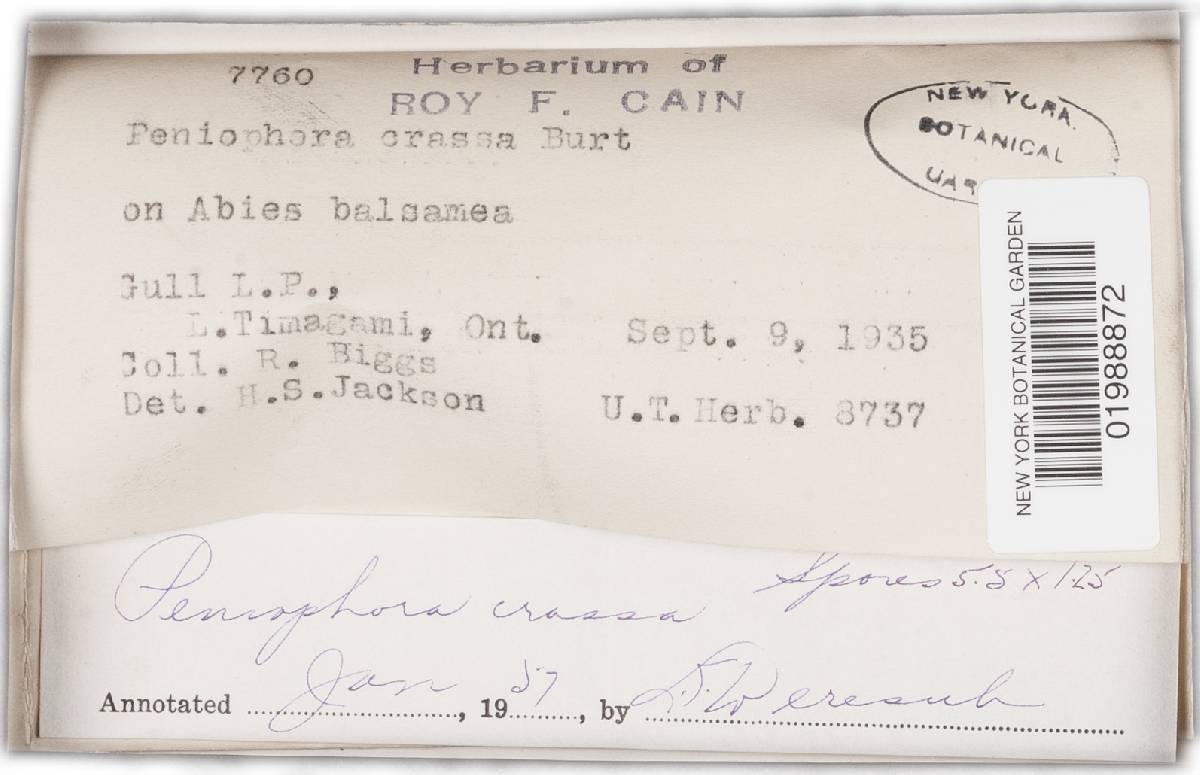 7760
Herbarium of
ROY F. CAIN
Peniophora crassa Burt
on Abies balsamea
Gull L.P.,
L.Timagami, Ont. Sept. 9, 1935
Coll. R. Biggs
Det. H.S.Jackson U.T. Herb. 8737
NEW YORK
BOTANICAL
GAR
NEW YORK BOTANICAL GARDEN
01988872
Peniophora crassa
Spores 5.5 x 1.25
Annotated Jan, 1957, by L. Weresub